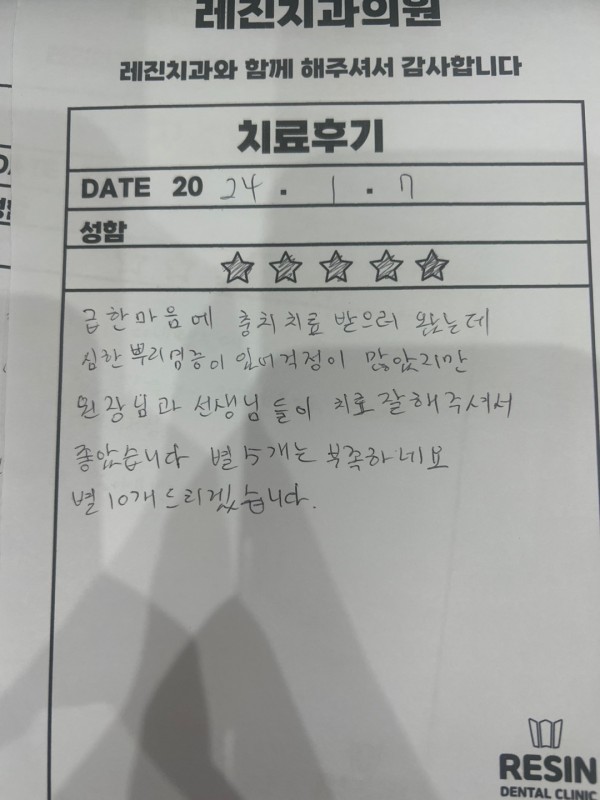 레진치과의원
레진치과와 함께 해주셔서 감사합니다
치료후기
DATE 20 24 . 1 . 7
성함
급한마음에 충치치료 받으러 왔는데
심한 뿌리염증이 있어걱정이 많았지만
원장님과 선생님들이 치료 잘해주셔서
좋았습니다 별 5개는 부족하네요
별 10개 드리겠습니다.
RESIN
DENTAL CLINIC